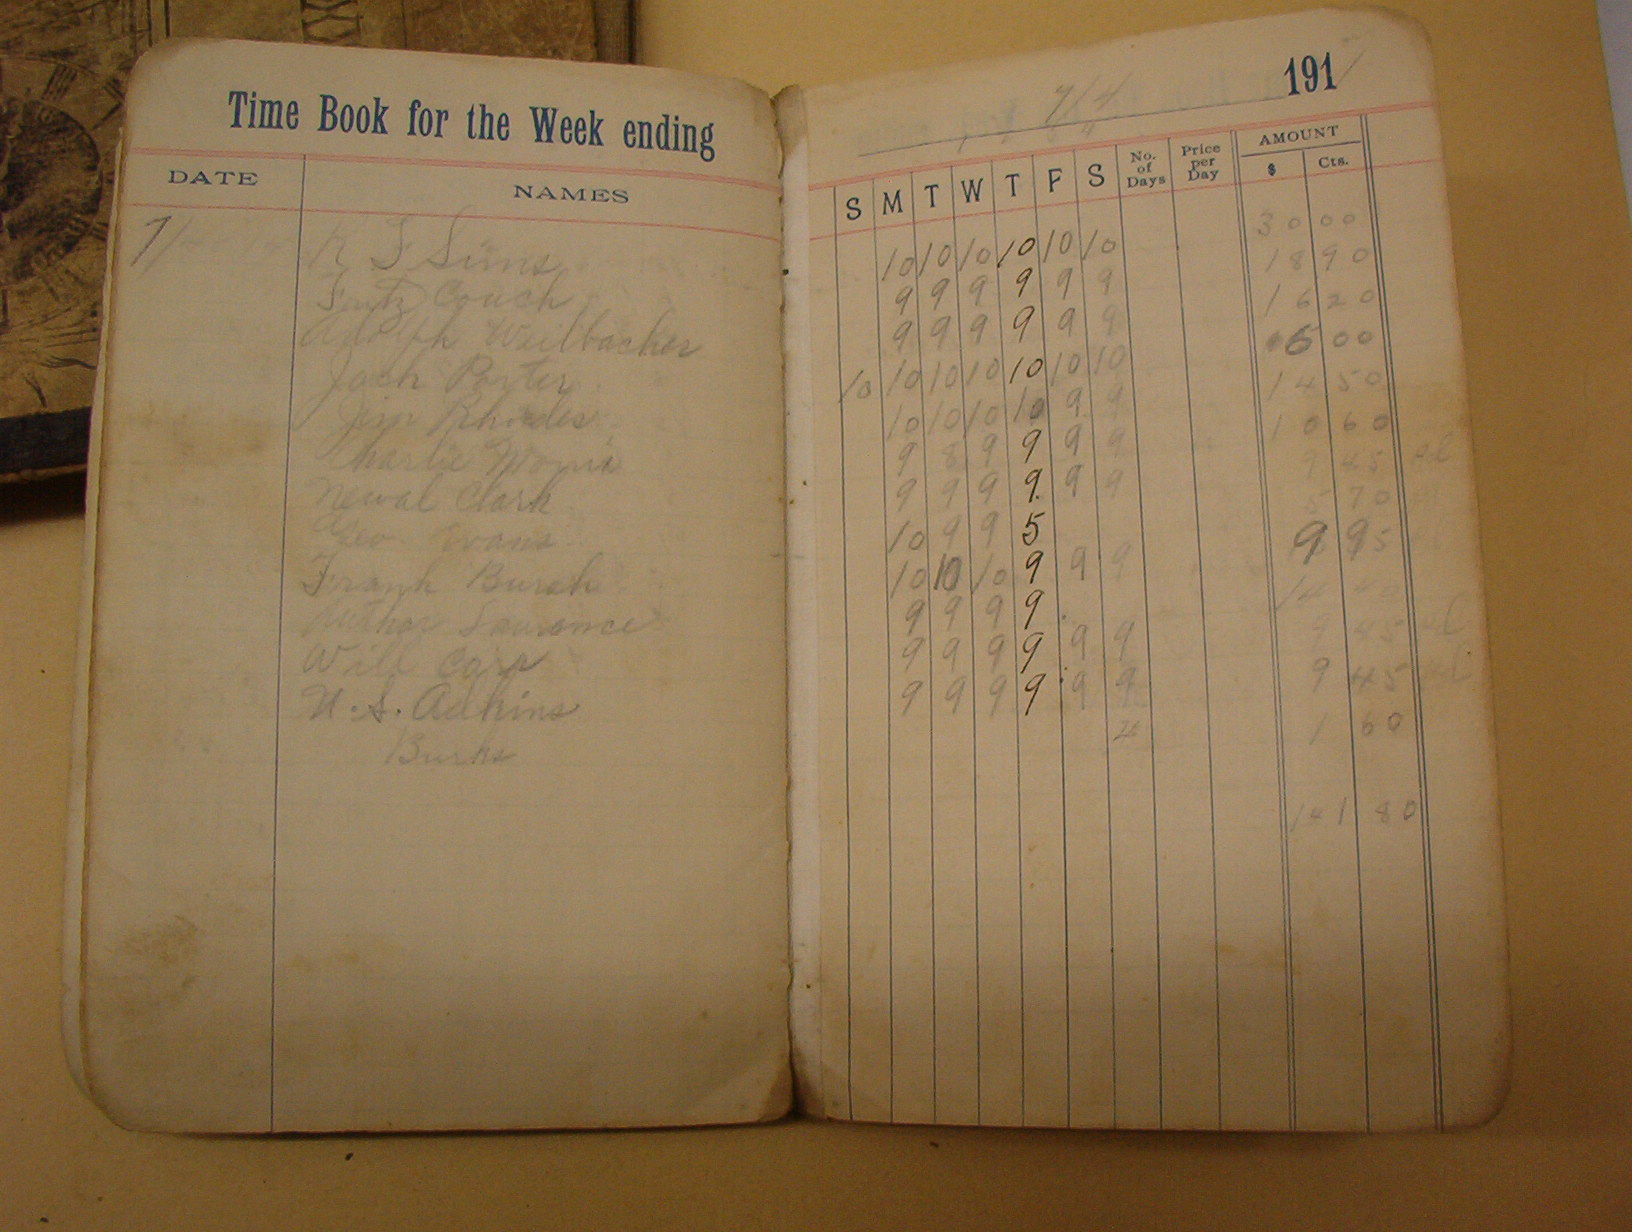 Time Book for the Week ending
7/4 191
DATE NAMES S M T W T F S No. of Days Price per Day AMOUNT $ Cts.
7/ K F Sims 10 10 10 10 10 10 30 00
Fritz Couch 9 9 9 9 9 9 18 90
Adolph Weilbacher 9 9 9 9 9 9 16 20
Jack Porter 10 10 10 10 10 10 10 00
Jim Rhodes 10 10 10 10 9 9 14 50
Charlie Morris 9 8 9 9 9 9 10 60
Newal Clark 9 9 9 9 9 9 9 45 pd
Geo Evans 10 9 9 5 5 70
Frank Burch 10 10 10 9 9 9 9 95
Author Laurence 9 9 9 9 14 40
Will Carr 9 9 9 9 9 9 9 45 pd
N. S. Adkins 9 9 9 9 9 9 9 45 pd
Burks 1 60
141 80